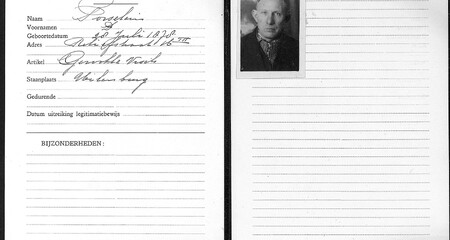 Naam Porselein
Voornamen D
Geboortedatum 28 Juli 1878
Adres
Artikel Gerookte Visch
Staanplaats
Gedurende
Datum uitreiking legitimatiebewijs
BIJZONDERHEDEN: